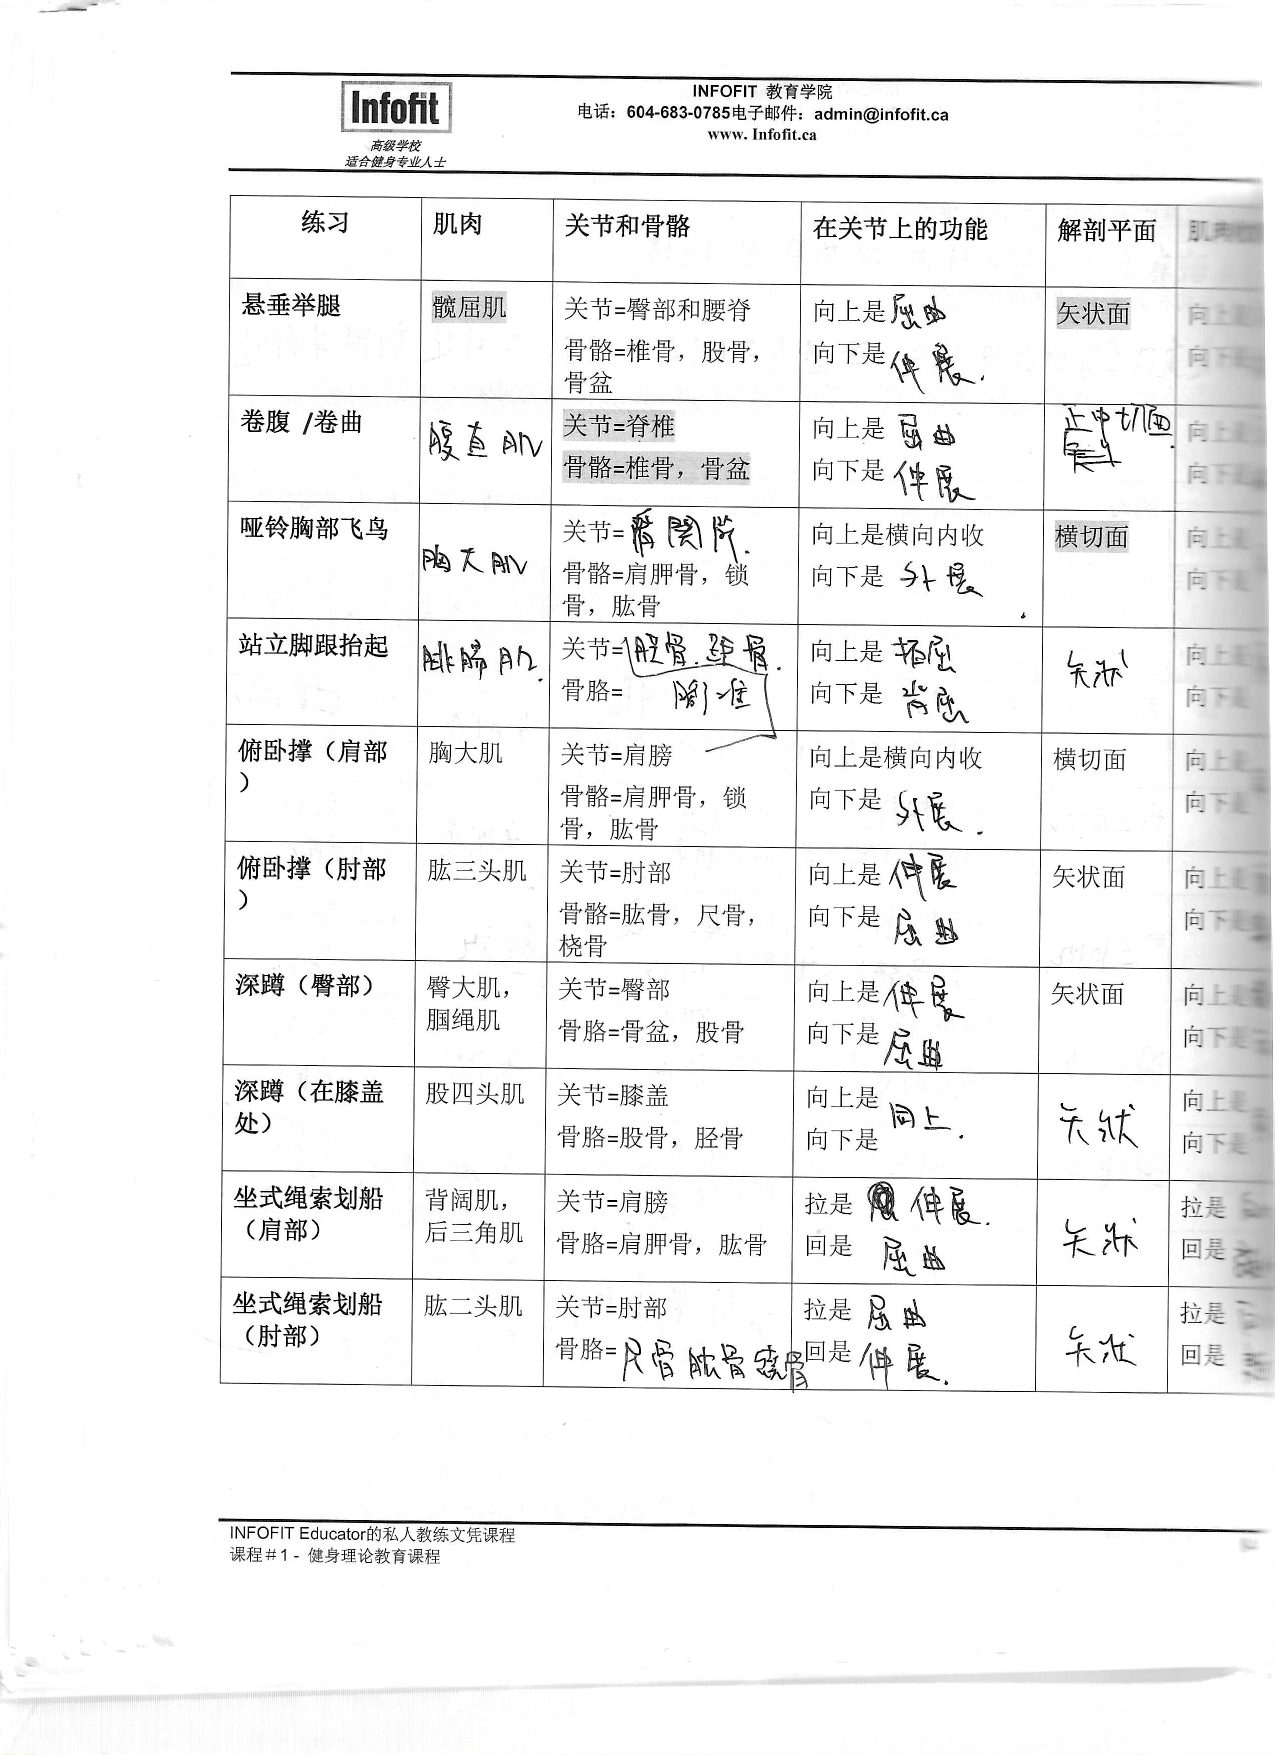 Infofit
高级学校
适合健身专业人士
INFOFIT 教育学院
电话：604-683-0785电子邮件：admin@infofit.ca
www. Infofit.ca
练习 肌肉 关节和骨骼 在关节上的功能 解剖平面
悬垂举腿 髋屈肌 关节=臀部和腰脊 向上是屈曲 矢状面
骨骼=椎骨，股骨， 向下是伸展.
骨盆
卷腹 /卷曲 腹直肌 关节=脊椎 向上是 屈曲 正中切面
骨骼=椎骨，骨盆 向下是 伸展
哑铃胸部飞鸟 胸大肌 关节= 向上是横向内收 横切面
骨骼=肩胛骨，锁 向下是 外展
骨，肱骨
站立脚跟抬起 腓肠肌. 关节= 向上是 矢状
骨胳= 向下是 背屈
俯卧撑（肩部 胸大肌 关节=肩膀 向上是横向内收 横切面
） 骨骼=肩胛骨，锁 向下是 外展.
骨，肱骨
俯卧撑（肘部 肱三头肌 关节=肘部 向上是 伸展 矢状面
） 骨骼=肱骨，尺骨， 向下是 屈曲
桡骨
深蹲（臀部） 臀大肌， 关节=臀部 向上是伸展 矢状面
腘绳肌 骨胳=骨盆，股骨 向下是 屈曲
深蹲（在膝盖 股四头肌 关节=膝盖 向上是 同上. 矢状
处） 骨胳=股骨，胫骨 向下是
坐式绳索划船 背阔肌， 关节=肩膀 拉是 伸展. 矢状
（肩部） 后三角肌 骨胳=肩胛骨，肱骨 回是 屈曲
坐式绳索划船 肱二头肌 关节=肘部 拉是 屈曲 矢状
（肘部） 骨胳=尺骨 肱骨 桡骨 回是 伸展.
INFOFIT Educator的私人教练文凭课程
课程＃1 - 健身理论教育课程